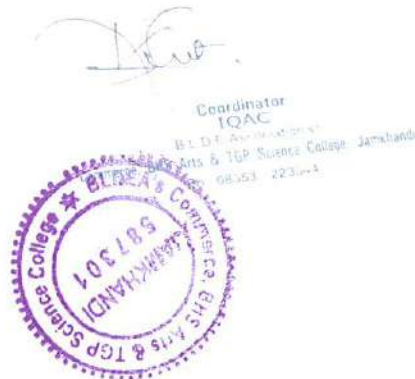 Coordinator
IQAC
B L D E Association's
Commerce, BHS Arts & TGP Science College, Jamkhandi
08353
BLDEA's Commerce, BHS Arts & TGP Science College ★
JAMKHANDI
587301